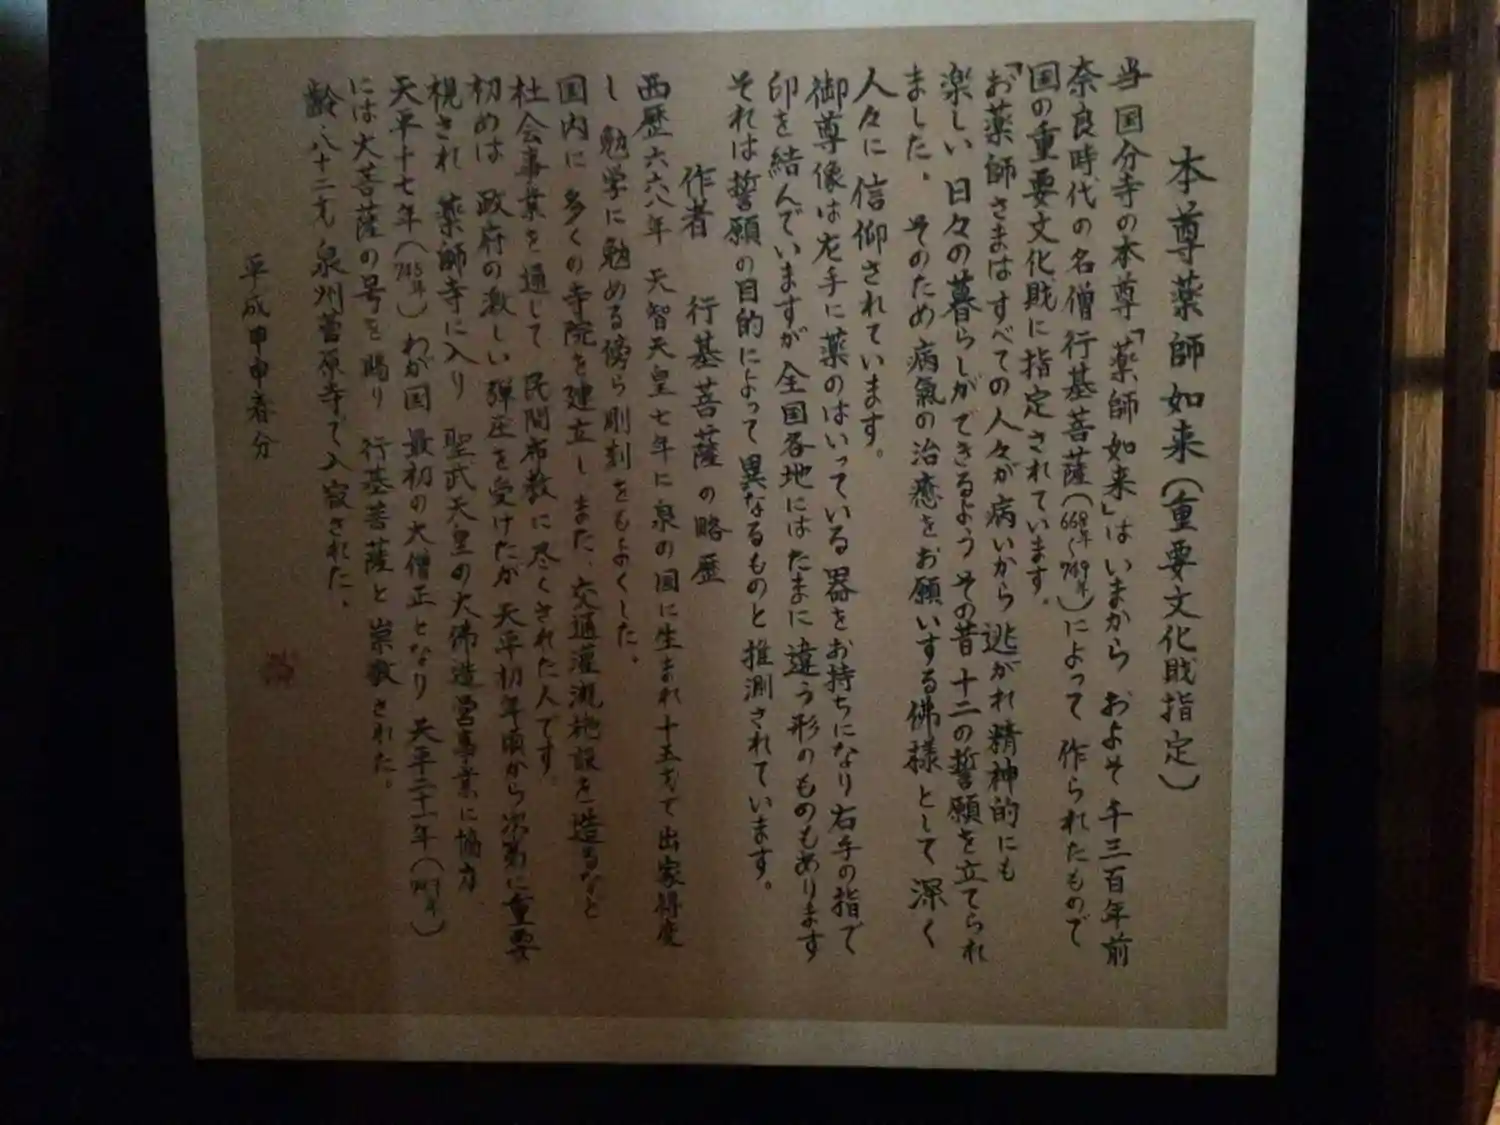 本尊薬師如来(重要文化財指定)
当国分寺の本尊「薬師如来」はいまから およそ千三百年前
奈良時代の名僧行基菩薩(668年〜749年)によって 作られたもので
国の重要文化財に指定されています。
「お薬師さまはすべての人々が病いから逃がれ精神的にも
楽しい日々の暮らしができるようその昔十二の誓願を立てられ
ました。そのため病氣の治癒をお願いする佛様として深く
人々に信仰されています。
御尊像は左手に薬のはいっている器をお持ちになり右手の指で
印を結んでいますが全国各地にはたまに違う形のものもあります
それは誓願の目的によって異なるものと推測されています。
作者 行基菩薩の略歴
西歴六六八年 天智天皇七年に泉の国に生まれ十五才で出家得度
し 勉学に勉める傍ら彫刻をもよくした。
国内に多くの寺院を建立しまた、交通灌漑施設を造るなど
社会事業を通して 民間布教に尽くされた人です。
初めは 政府の激しい弾圧を受けたが天平初年頃から次第に重要
視され 薬師寺に入り 聖武天皇の大佛造営事業に協力
天平十七年(745年) わが国 最初の大僧正となり 天平二十一年(749年)
には大菩薩の号を賜り 行基菩薩と崇敬された。
齢八十二才泉州菅原寺で入寂された。
平成甲申春分